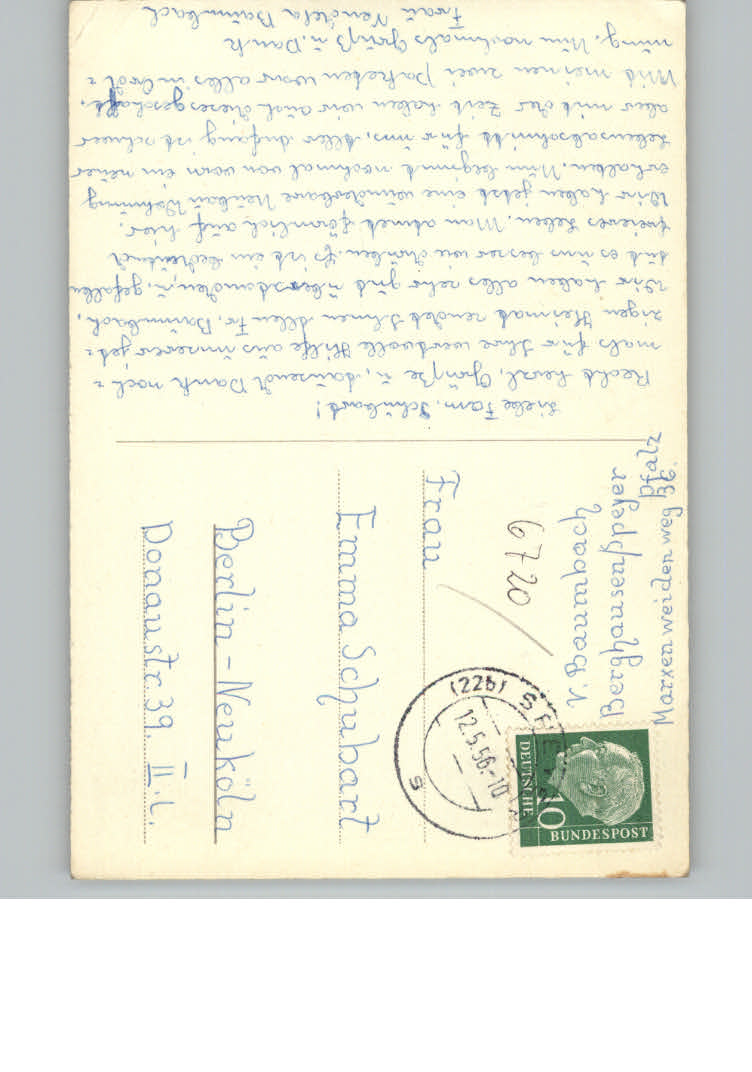 Liebe Fam. Schubart!
Recht herzl. Grüße u. tausend Dank noch=
mals für Ihre wertvolle Hilfe aus unserer jet=
zigen Heimat sendet Ihnen allen Fr. Baumbach,
Wir haben alles sehr gut überstanden, u. gefallen
tut es uns besser wie drüben. Es ist ein bedeutend
freieres Leben. Man atmet förmlich auf hier.
Wir haben jetzt eine wunderbare Neubau Wohnung
erhalten. Nun beginnt nochmal von vorn ein neuer
Lebensabschnitt für uns, aller Anfang ist schwer
aber mit der Zeit haben wir auch dieses geschafft.
Mit meinen zwei Paketen war alles in Ord=
nung. Nun nochmals Grüße u. Dank
Frau Vendela Baumbach
V. Baumbach
Berghausen/Speyer
Pfalz
Marxenweiderweg 36.
6720
Frau
Emma Schubart
Berlin-Neuköln
Donaustr. 39. II. l.
(22b) SPEYER
12.5.56.-10
S
10
DEUTSCHE
BUNDESPOST